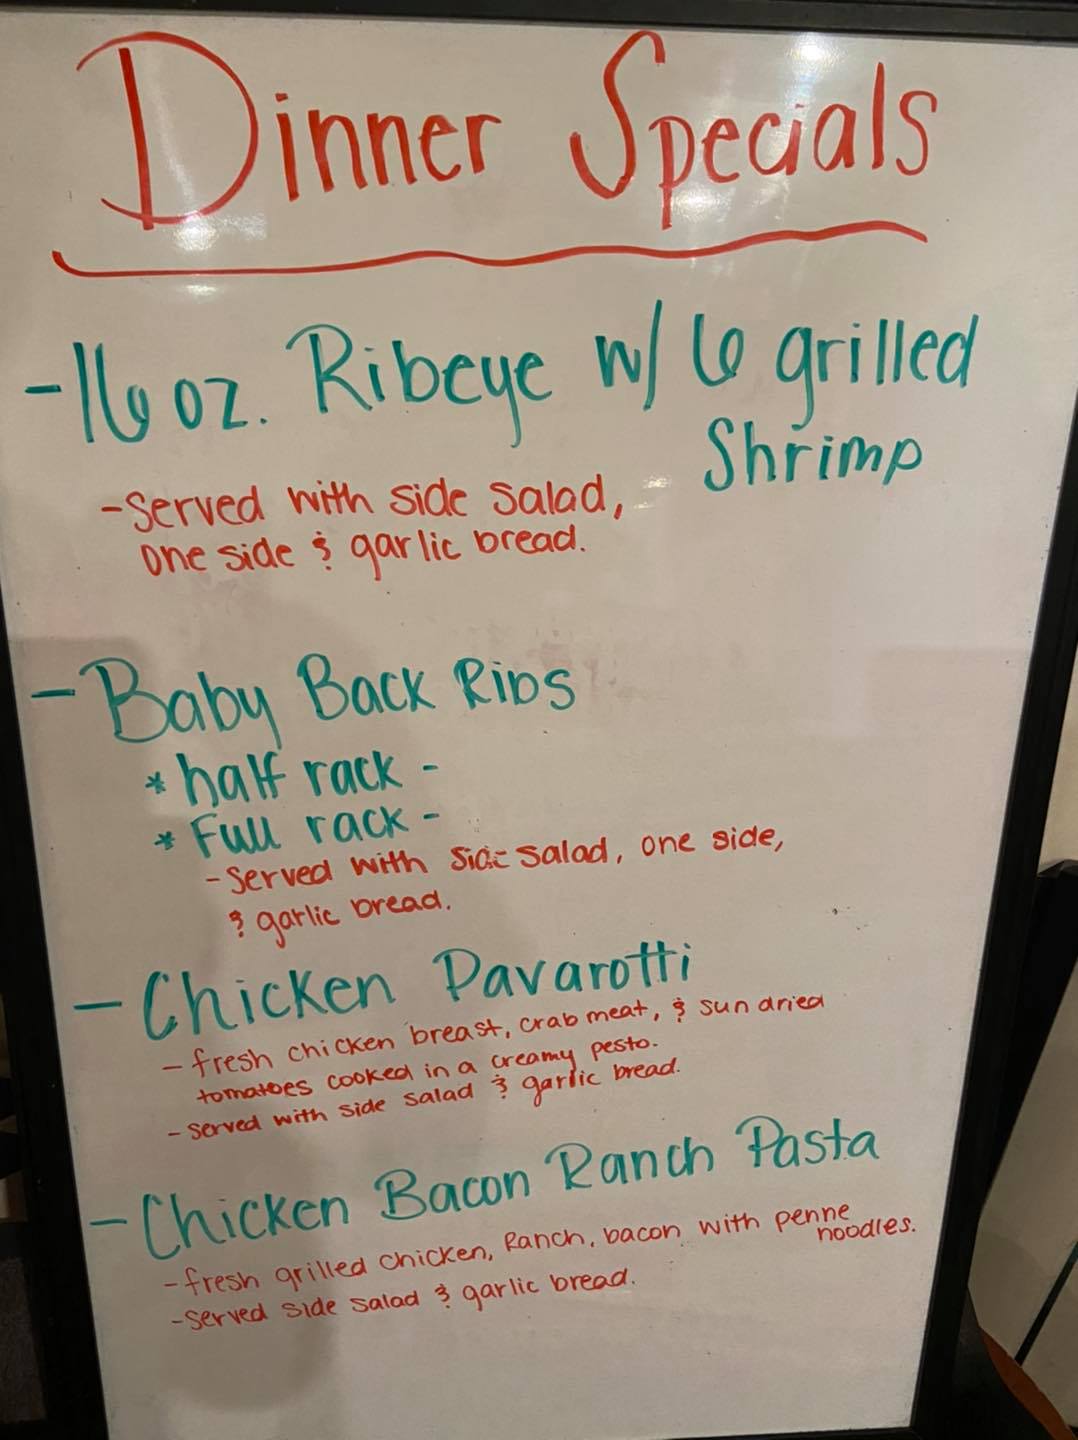 Dinner Specials
-16 oz. Ribeye w/ 6 grilled
Shrimp
-Served with side salad,
one side & garlic bread.
-Baby Back Ribs
* half rack -
* Full rack -
-Served with side salad, one side,
& garlic bread.
-Chicken Pavarotti
-fresh chicken breast, crab meat, & sun dried
tomatoes cooked in a creamy pesto.
-served with side salad & garlic bread.
-Chicken Bacon Ranch Pasta
-fresh grilled chicken, Ranch, bacon with penne
noodles.
-served side salad & garlic bread.